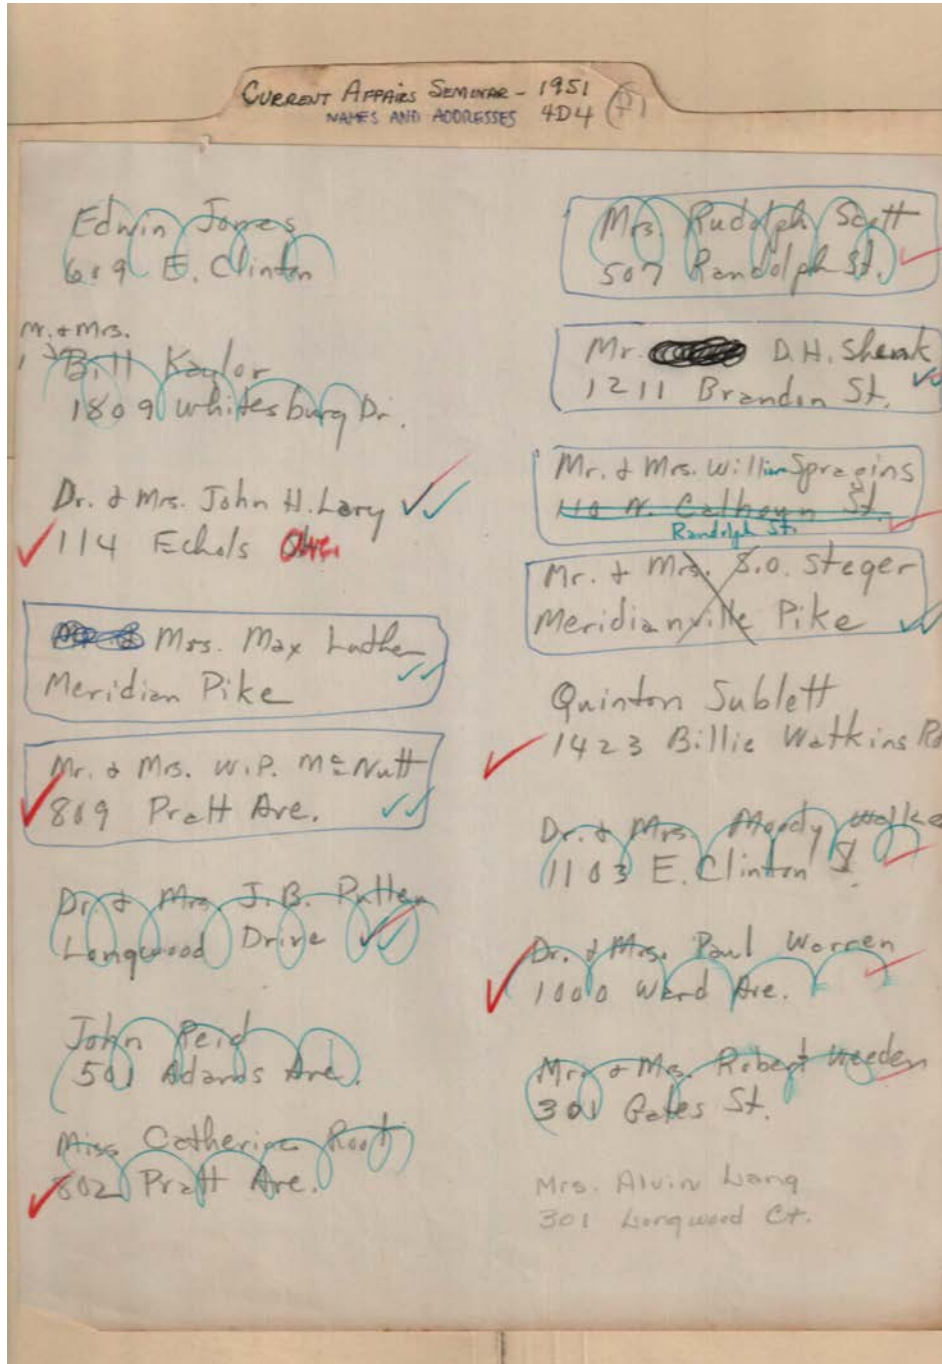 CURRENT AFFAIRS SEMINAR - 1951
NAMES AND ADDRESSES 4D4
Edwin Jones
609 E. Clinton
Mr. & Mrs.
Bill Kaylor
1809 Whitesburg Dr.
Dr. & Mrs. John H. Lary
114 Echols
Mrs. Max Luther
Meridian Pike
Mr. & Mrs. W.P. McNutt
809 Pratt Ave.
Dr. & Mrs. J.B. Patten
Longwood Drive
John Reid
501 Adams Ave.
Miss Catherine Root
802 Pratt Ave.
Mrs. Rudolph Scott
507 Randolph St.
Mr. D.H. Shenk
1211 Brandon St.
Mr. & Mrs. William Spragins
110 N. Calhoun St.
Randolph St.
Mr. & Mrs. S.O. Steger
Meridianville Pike
Quinton Sublett
1423 Billie Watkins Rd
Dr. & Mrs. Moody Walke
1103 E. Clinton
Dr. & Mrs. Paul Warren
1000 Ward Ave.
Mr. & Mrs. Robert Weeden
301 Gates St.
Mrs. Alvin Lang
301 Longwood Ct.